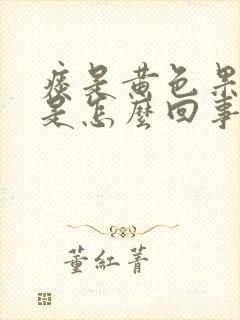 痰是黄色果
是怎麼回事
董紅菁